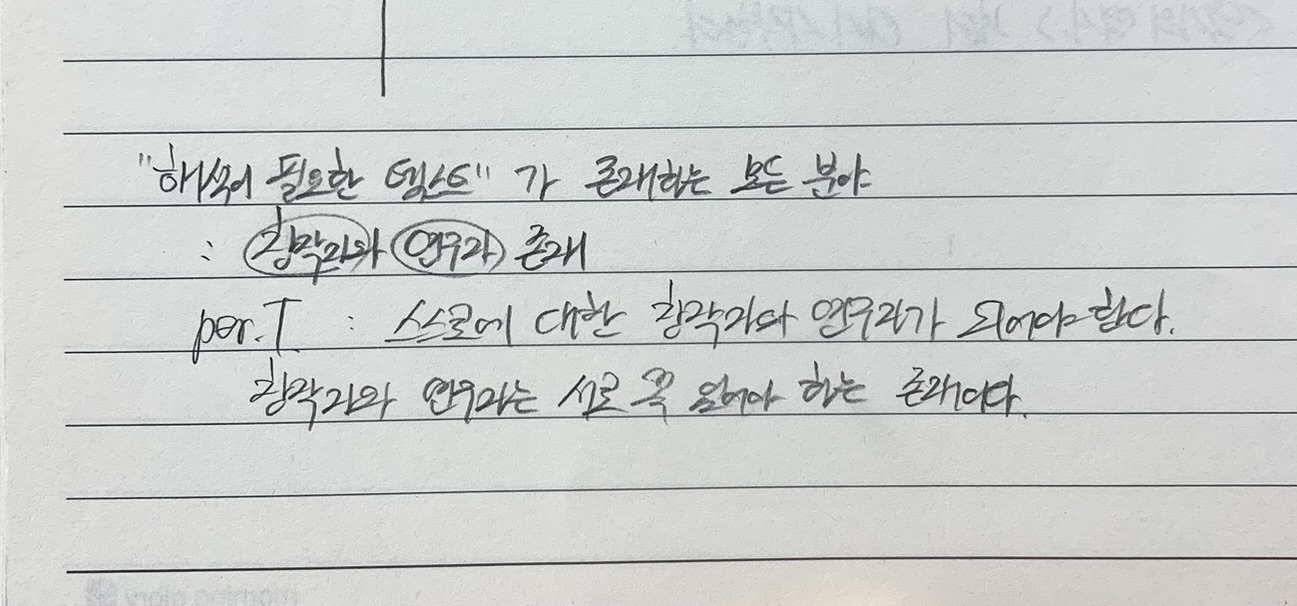 "해석이 필요한 텍스트"가 존재하는 모든 분야
: 창작자와 연구자 존재
per.T : 스스로에 대한 창작자와 연구자가 되어야 한다.
창작자와 연구자는 서로 꼭 있어야 하는 존재이다.
morning glory